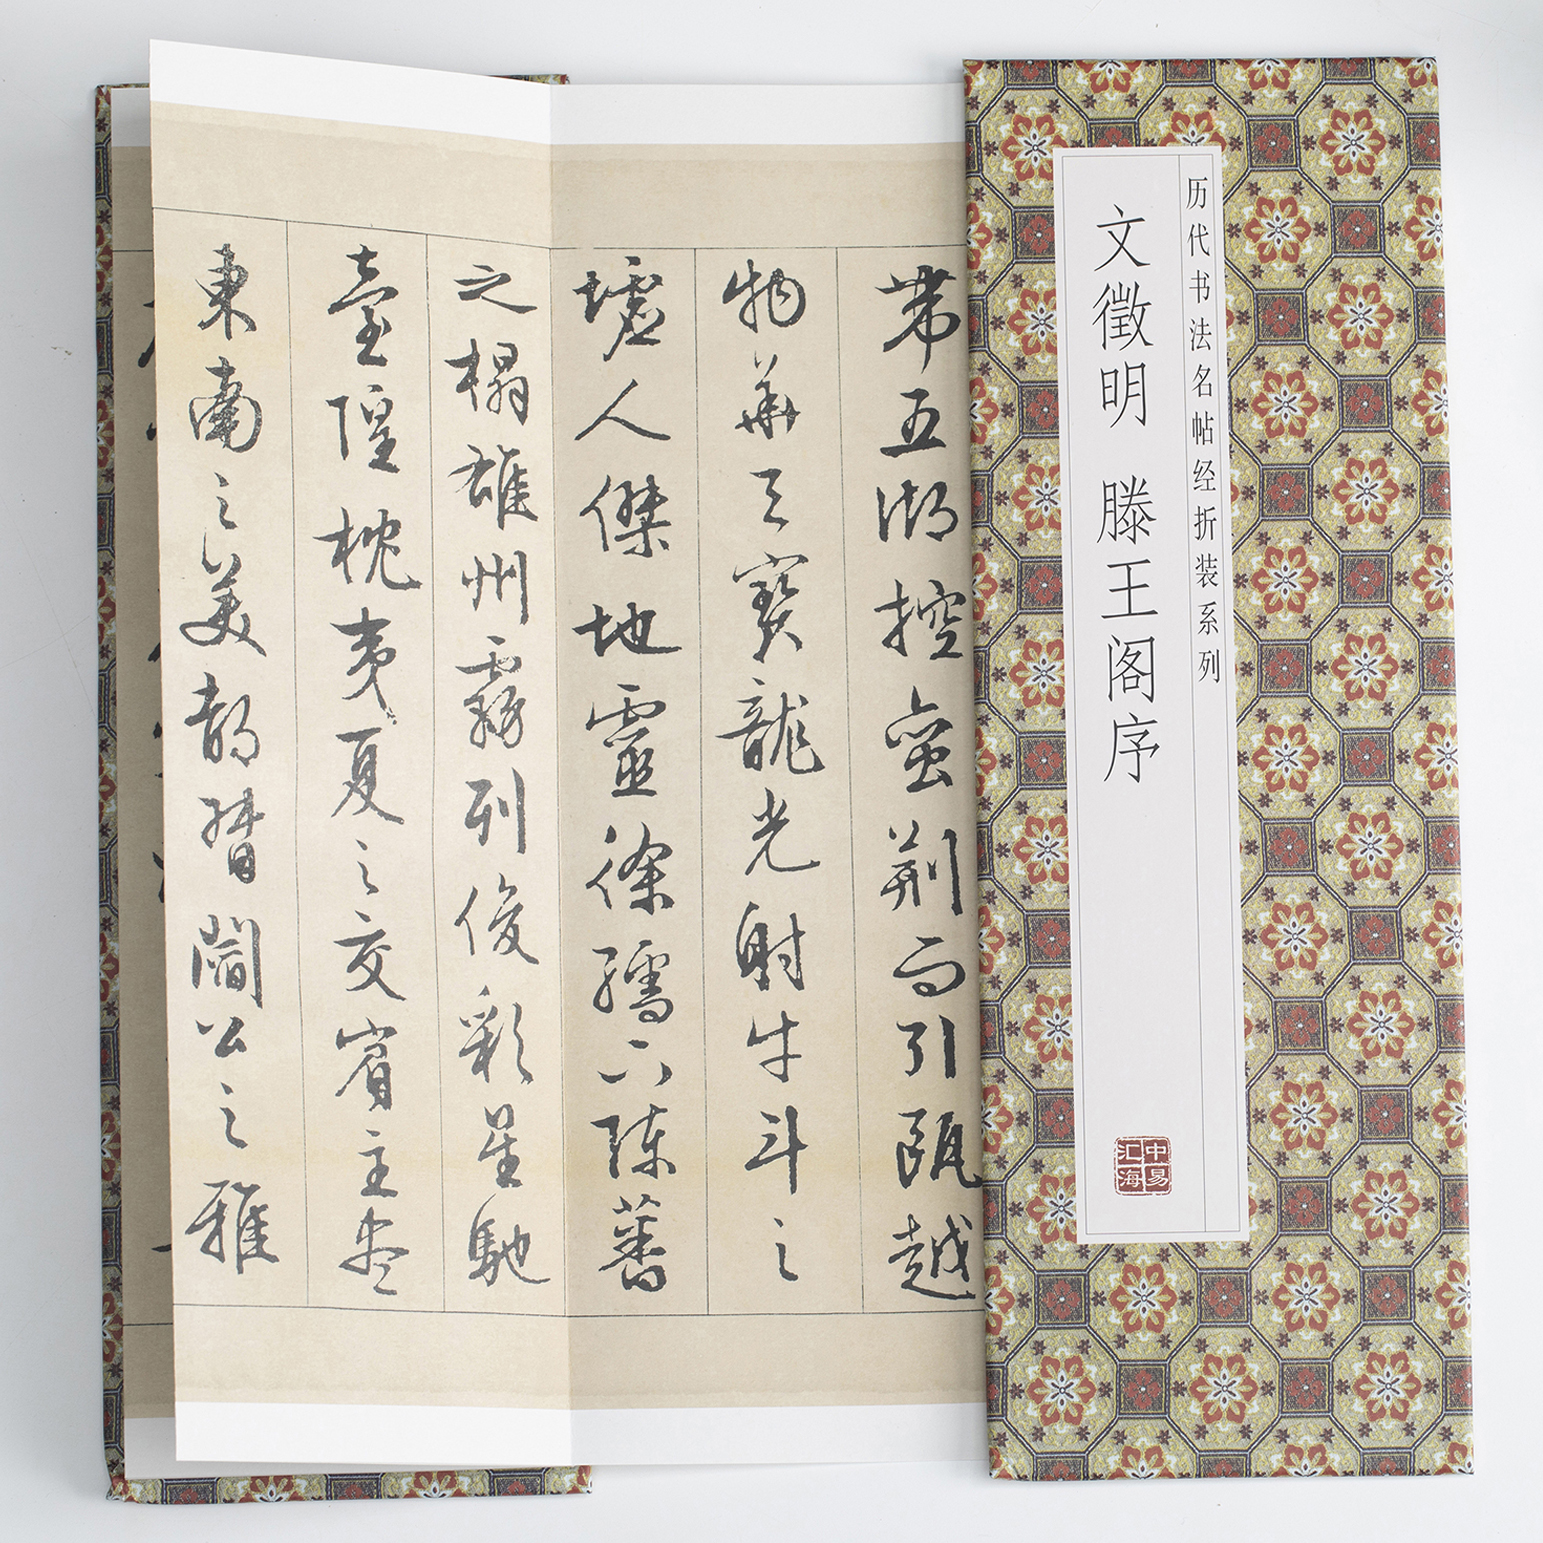 历代书法名帖经折装系列
文徵明 滕王阁序
中易汇海
帶五湖控蛮荆而引瓯越
物華天寶龍光射牛斗之
墟人傑地靈徐孺下陳蕃
之榻雄州霧列俊彩星馳
臺隍枕夷夏之交賓主盡
東南之美都督閻公之雅